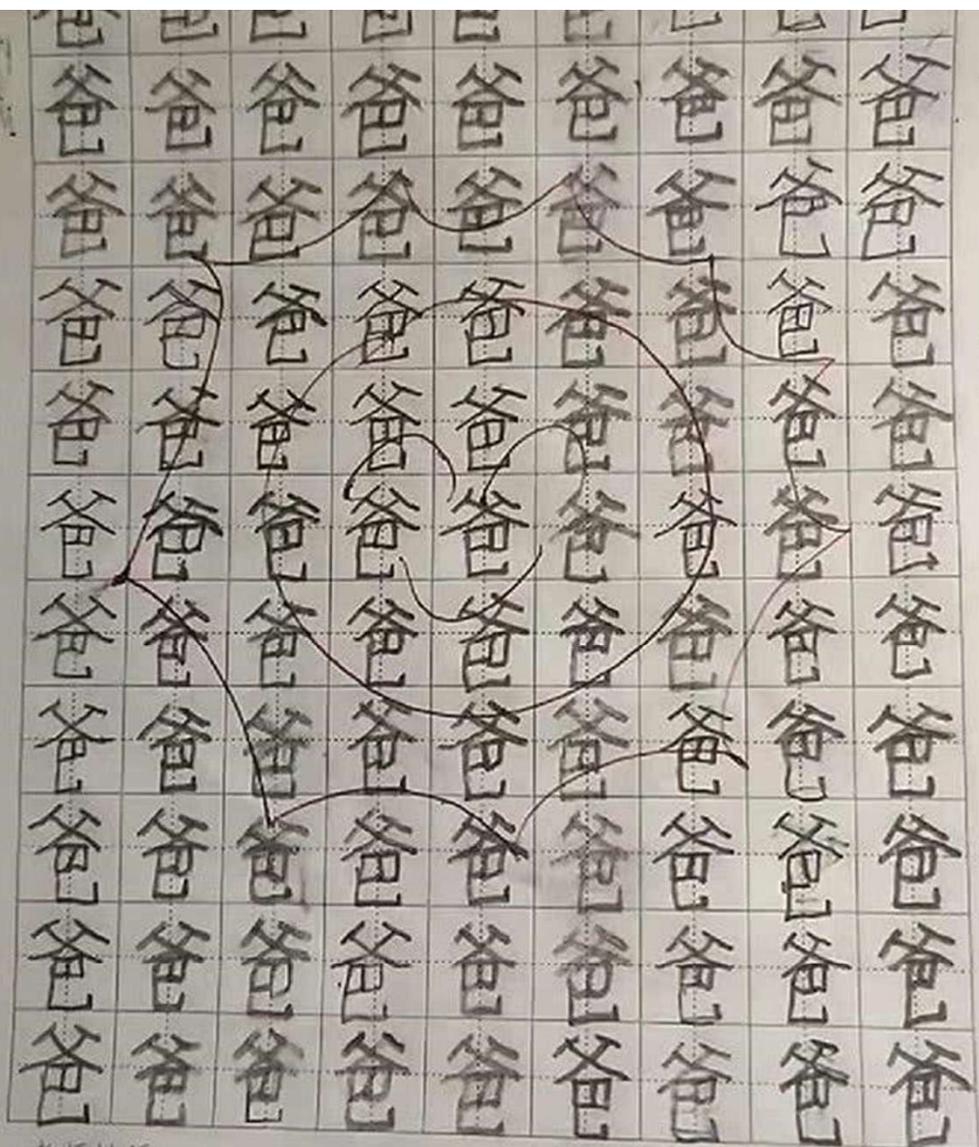 爸爸爸爸爸爸爸爸爸
爸爸爸爸爸爸爸爸爸
爸爸爸爸爸爸爸爸爸
爸爸爸爸爸爸爸爸爸
爸爸爸爸爸爸爸爸爸
爸爸爸爸爸爸爸爸爸
爸爸爸爸爸爸爸爸爸
爸爸爸爸爸爸爸爸爸
爸爸爸爸爸爸爸爸爸
爸爸爸爸爸爸爸爸爸
爸爸爸爸爸爸爸爸爸